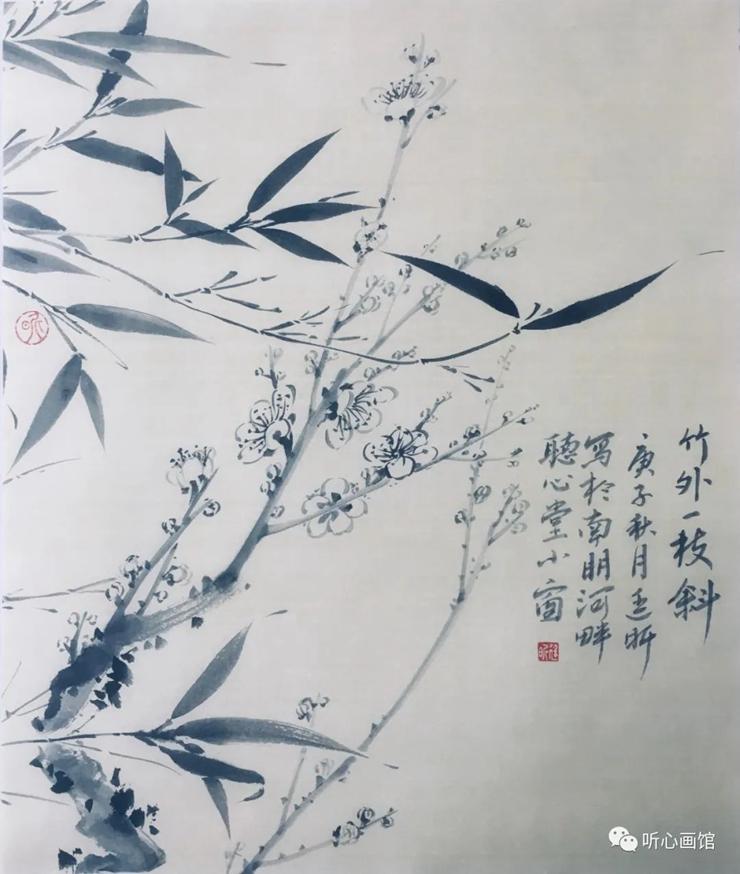 竹外一枝斜
庚子秋月昕
寫於南明河畔
聽心堂小窗
听心画馆